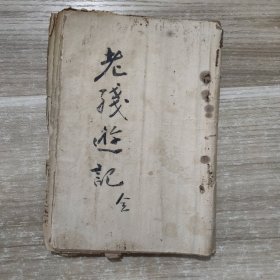 老殘遊記
全